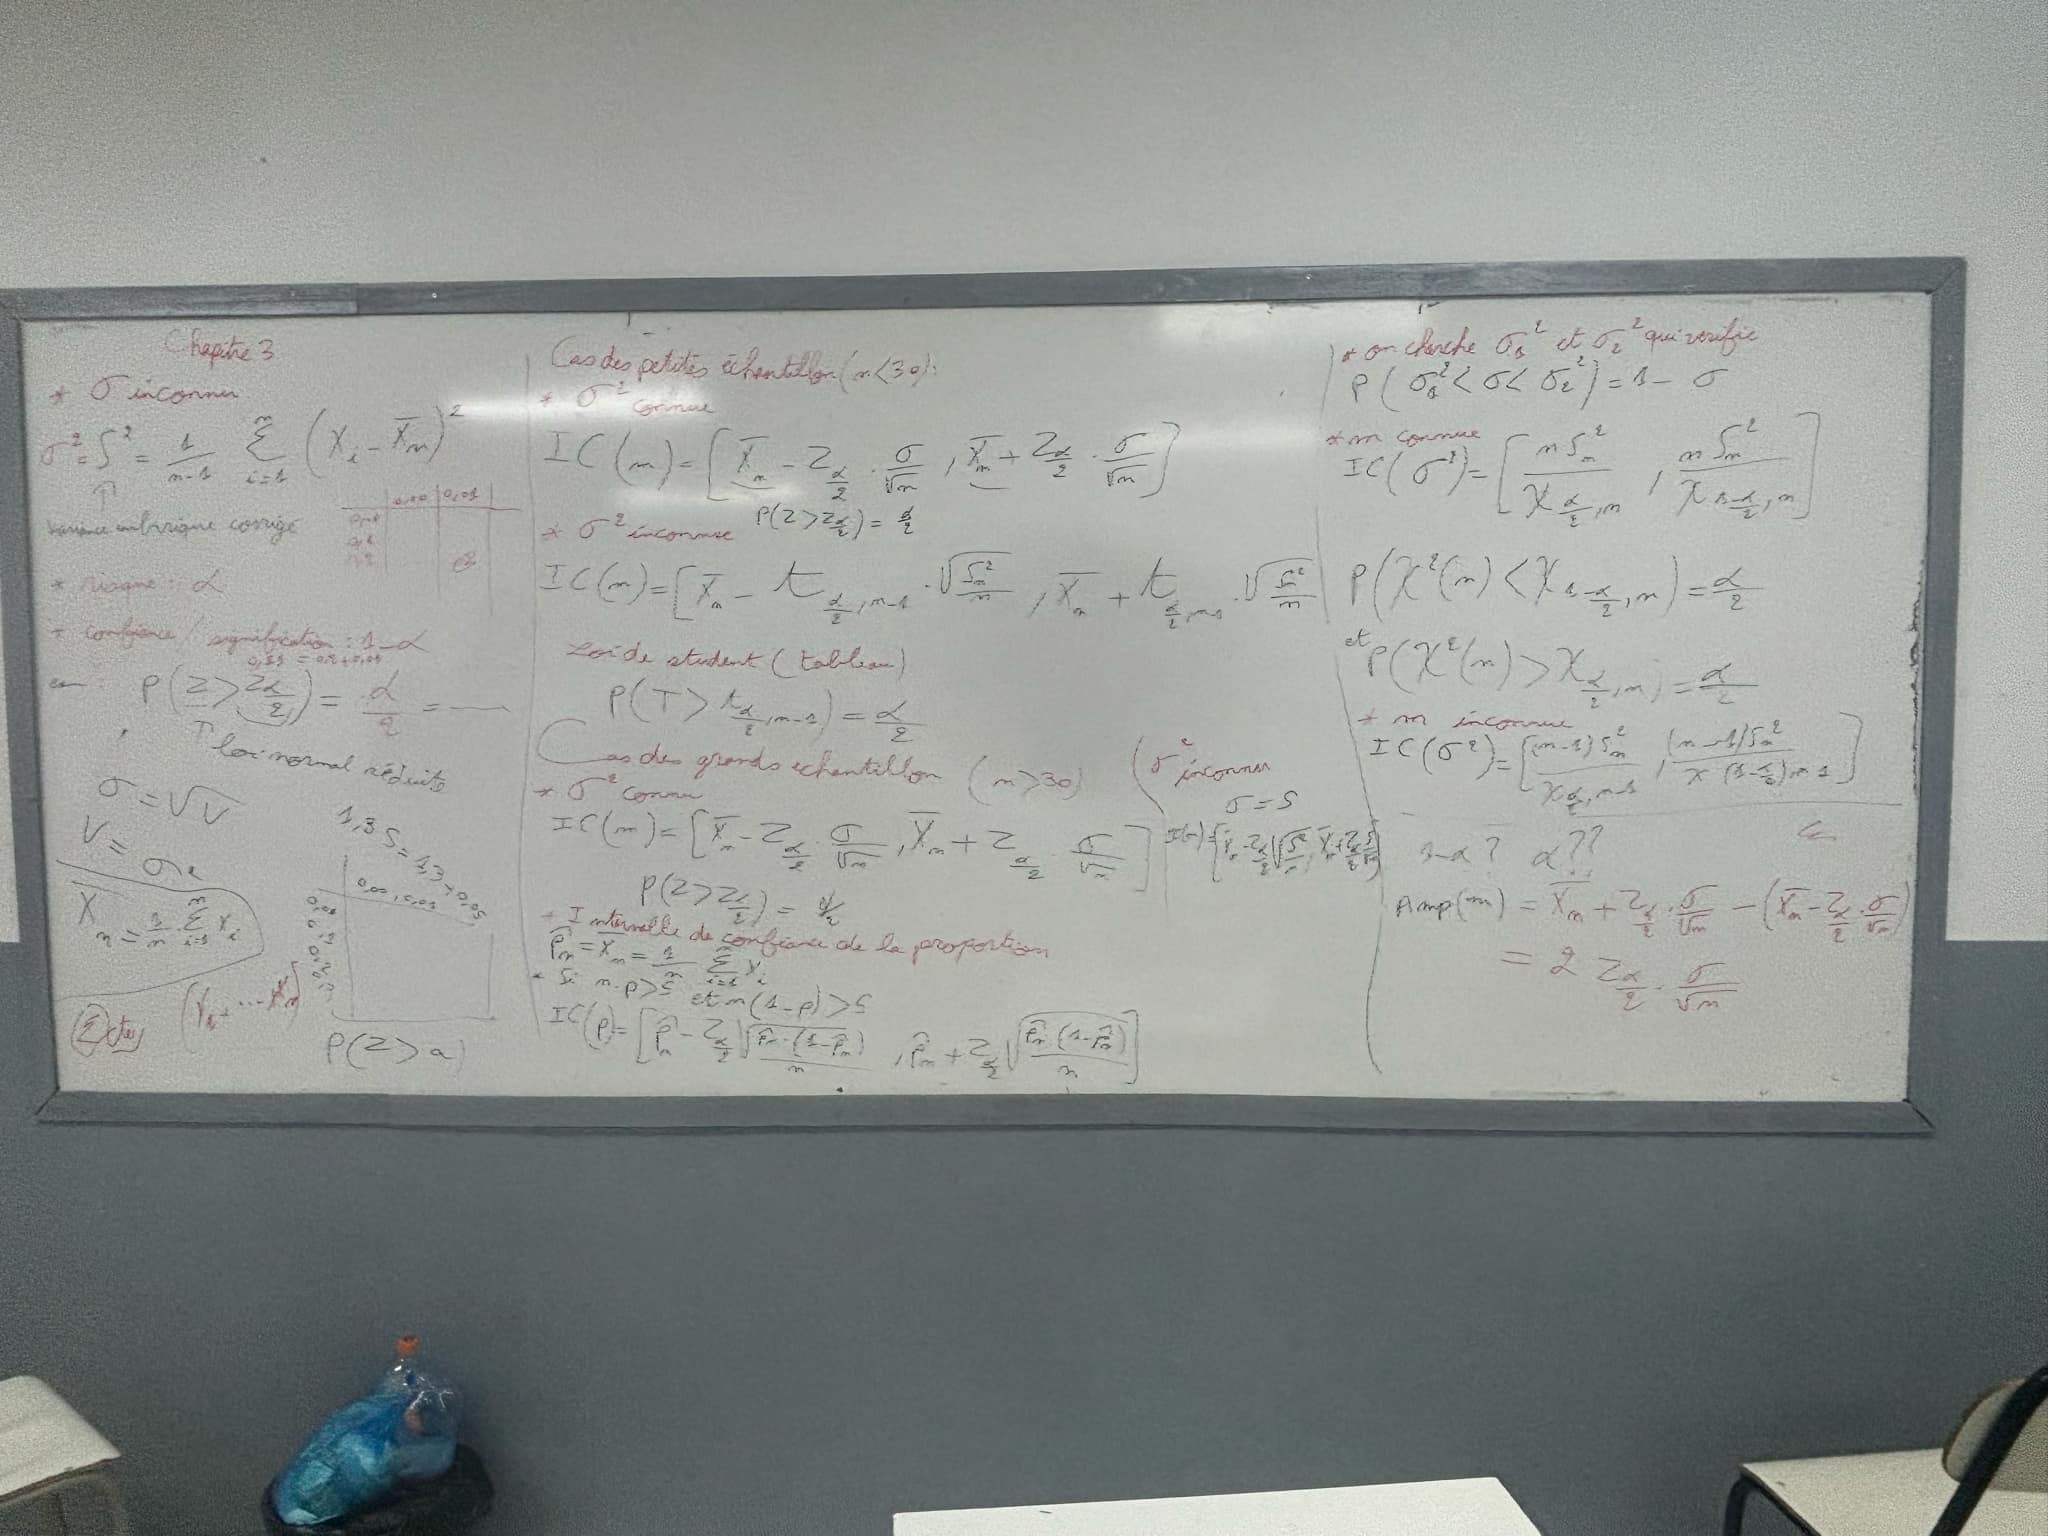 Chapitre 3
* σ inconnu
σ² = S² = 1/(n-1) Σ_{i=1}^{n} (X_i - X̄_n)²
↑
Variance corrigé
0,00 | 0,01
* risque : α
* confiance / signification : 1-α
P(Z > Z_{α/2}) = α/2 =
↑ loi normal réduite
σ = √V
V = σ²
1,35 = 1,3 + 0,05
0,00, 0,01
X̄_n = 1/n · Σ_{i=1}^{n} X_i
(X_1, ... X_n)
P(Z > a)
Cas des petites échantillon (n < 30) :
* σ² connue
IC(m) = [X̄_n - Z_{α/2} · σ/√n , X̄_n + Z_{α/2} · σ/√n]
P(Z > Z_{α/2}) = α/2
* σ² inconnue
IC(m) = [X̄_n - t_{α/2, n-1} · √(S_n²/n) , X̄_n + t_{α/2, n-1} · √(S_n²/n)
Loi de student (tableau)
P(T > t_{α/2, n-1}) = α/2
Cas des grands echantillon (n > 30)
* σ² connu
IC(m) = [X̄_n - Z_{α/2} · σ/√n , X̄_n + Z_{α/2} · σ/√n]
P(Z > Z_{α/2}) = α/2
(σ² inconnu
σ = S
* Intervalle de confiance de la proportion
p̂_n = X̄_n = 1/n Σ_{i=1}^{n} X_i
* Si n·p > 5 et n(1-p) > 5
IC(p) = [p̂_n - Z_{α/2} √(p̂_n · (1-p̂_n)/n) , p̂_n + Z_{α/2} √(p̂_n · (1-p̂_n)/n)]
* on cherche σ_1² et σ_2² qui verifie
P(σ_1² < σ < σ_2²) = 1 - σ
* m connue
IC(σ²) = [n S_n² / χ_{α/2, n} , n S_n² / χ_{1-α/2, n}]
P(χ²(n) < χ_{1-α/2, n}) = α/2
et P(χ²(n) > χ_{α/2, n}) = α/2
* m inconnue
IC(σ²) = [(n-1) S_n² / χ_{α/2, n-1} , (n-1) S_n² / χ_{(1-α/2) n-1}]
1-α ? α ??
Amp(m) = X̄_n + Z_{α/2} · σ/√n - (X̄_n - Z_{α/2} · σ/√n)
= 2 Z_{α/2} · σ/√n